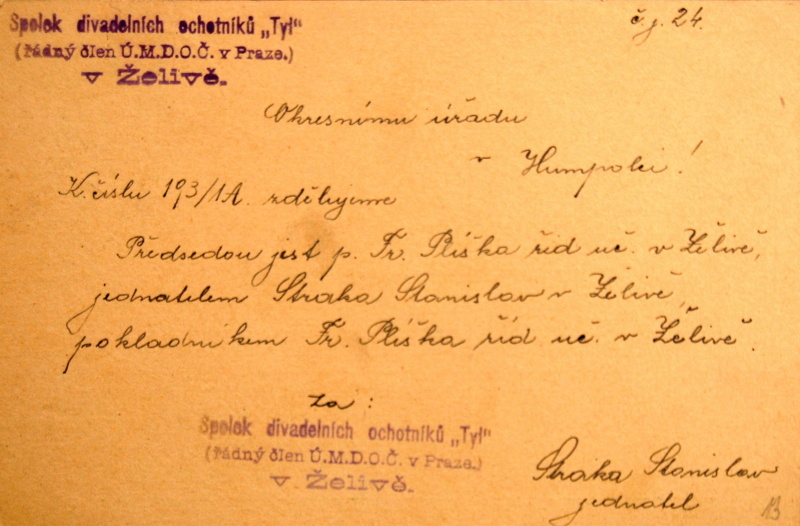 Spolek divadelních ochotníků „Tyl"
(řádný člen Ú.M.D.O.Č. v Praze.)
v Želivě.
č. j. 24.
Okresnímu úřadu
v Humpolci!
K číslu 193/1A. zdělujeme
Předsedou jest p. Fr. Pliška říd uč. v Želivě,
jednatelem Straka Stanislav v Želivě,
pokladníkem Fr. Pliška říd uč. v Želivě.
za:
Spolek divadelních ochotníků „Tyl"
(řádný člen Ú.M.D.O.Č. v Praze.)
v Želivě.
Straka Stanislav
jednatel
13